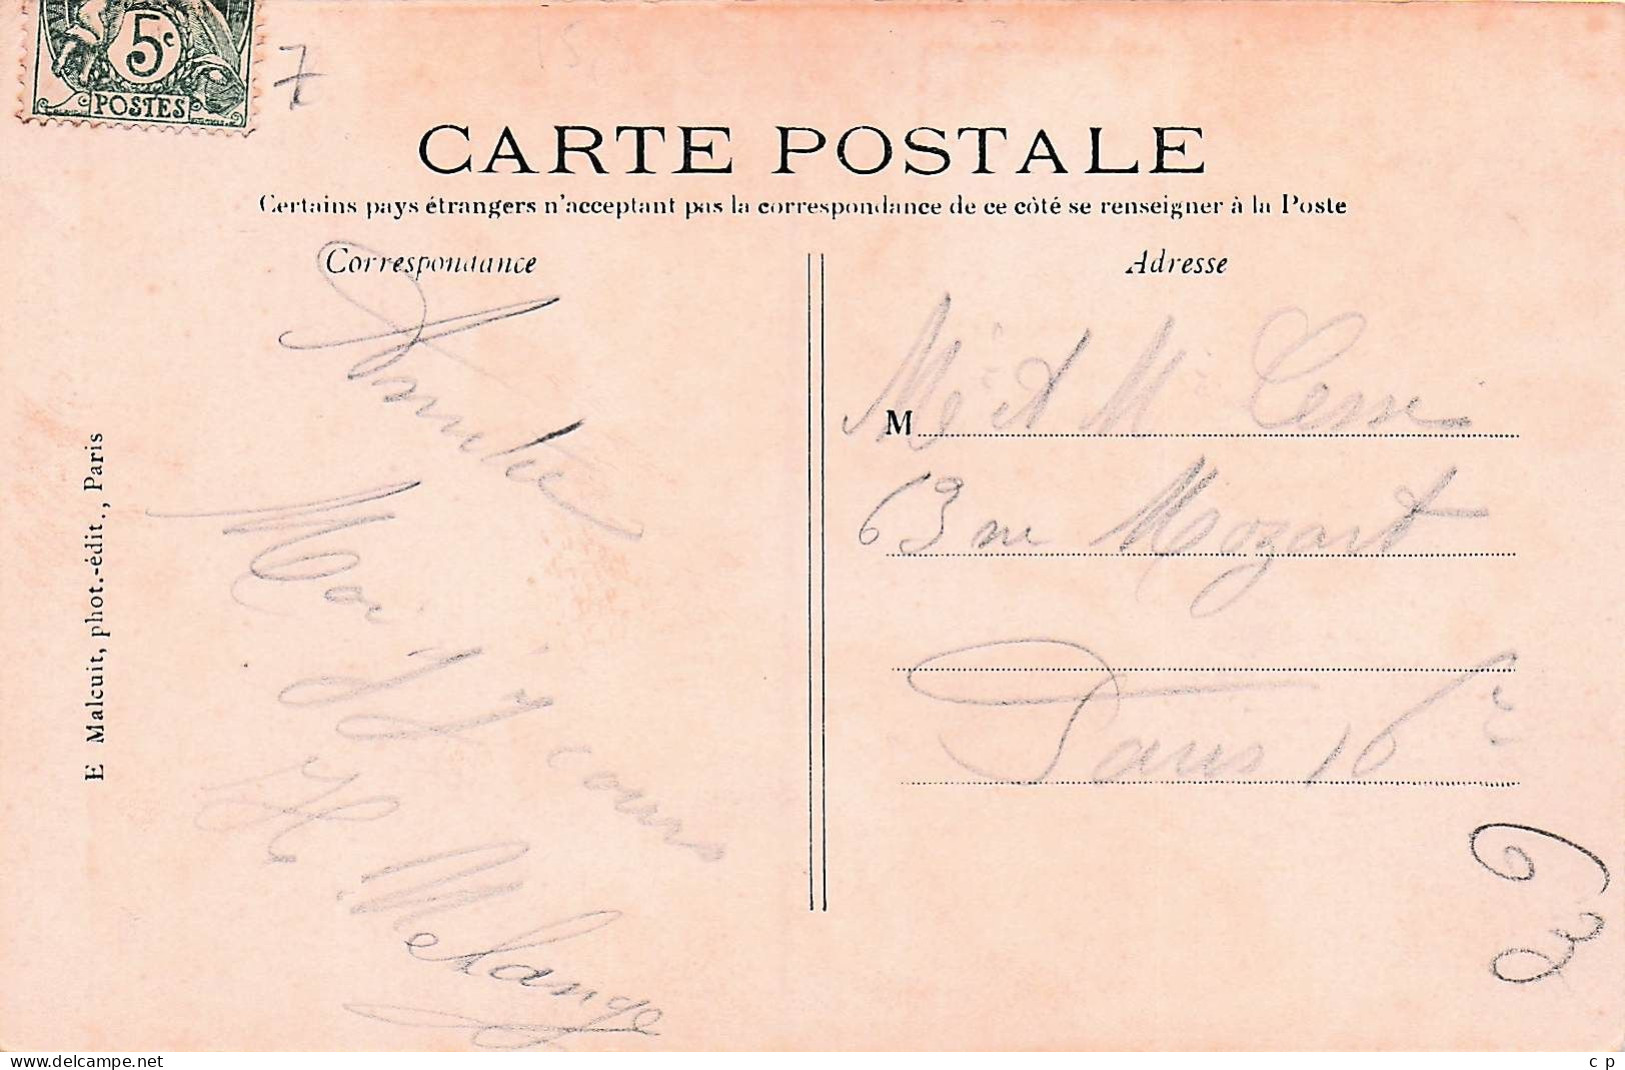 5c
POSTES
7
CARTE POSTALE
Certains pays étrangers n'acceptant pas la correspondance de ce côté se renseigner à la Poste
Correspondance
Amitié
H. Melange
E Malcuit, phot.-édit., Paris
Adresse
M
Me et Mr
63 rue Mozart
Paris 16e
63
www.delcampe.net
c p